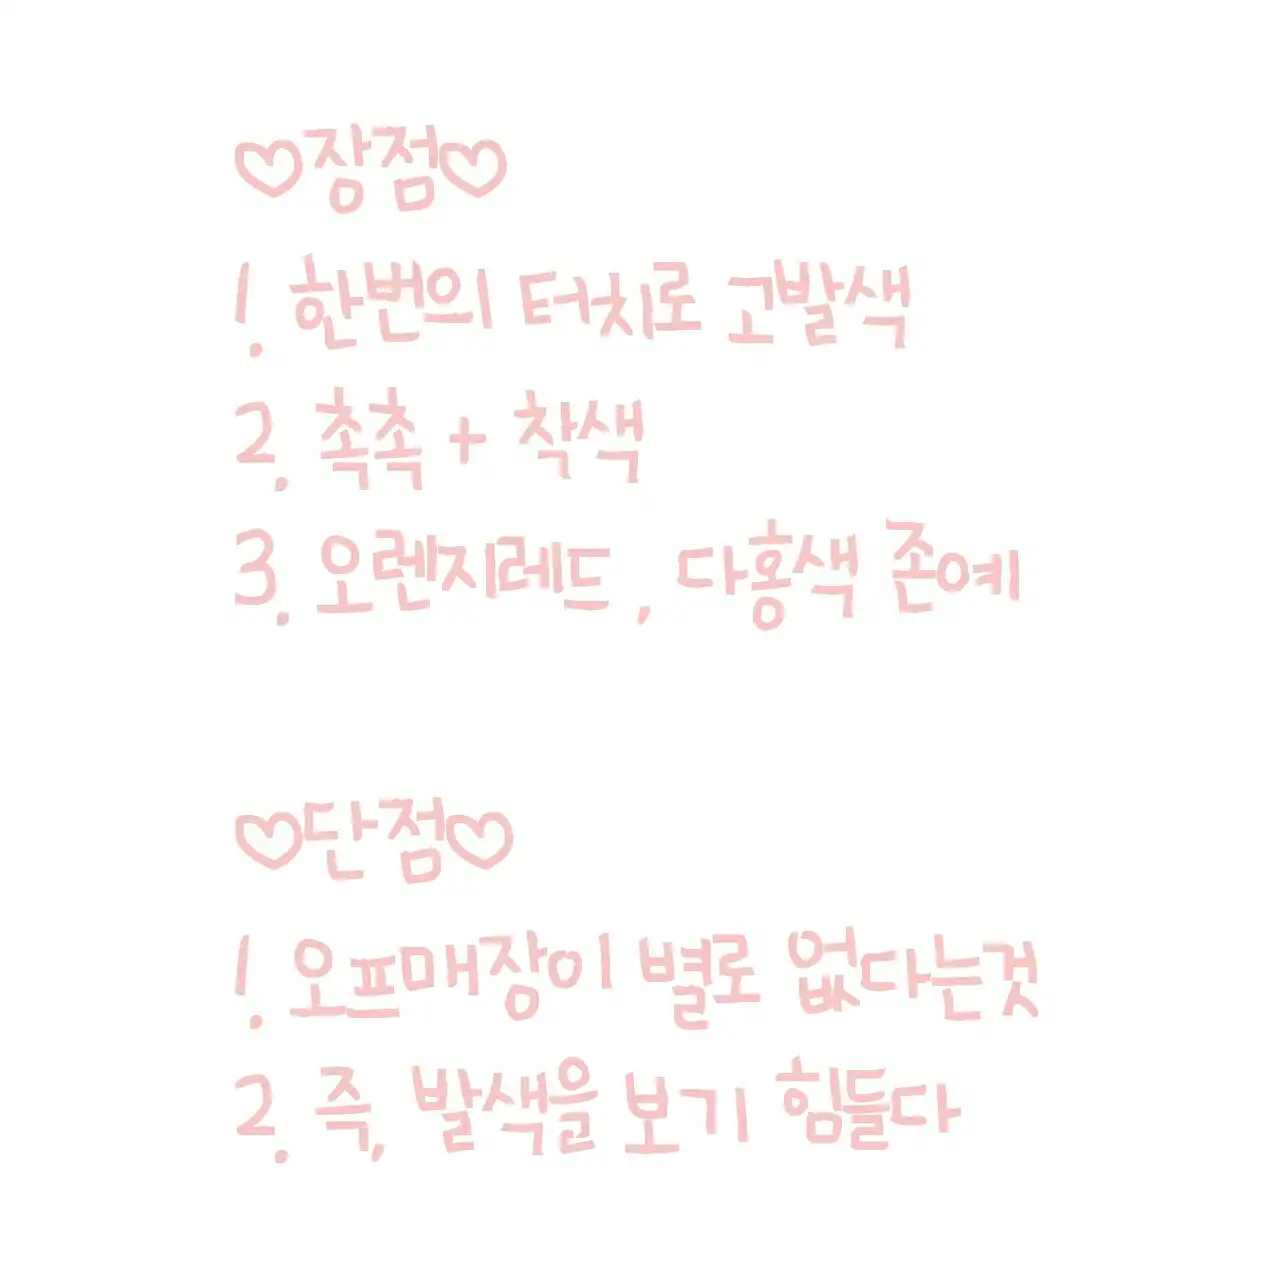 ♡장점♡
1. 한번의 터치로 고발색
2. 촉촉 + 착색
3. 오렌지레드, 다홍색 존예
♡단점♡
1. 오프매장이 별로 없다는것
2. 즉, 발색을 보기 힘들다